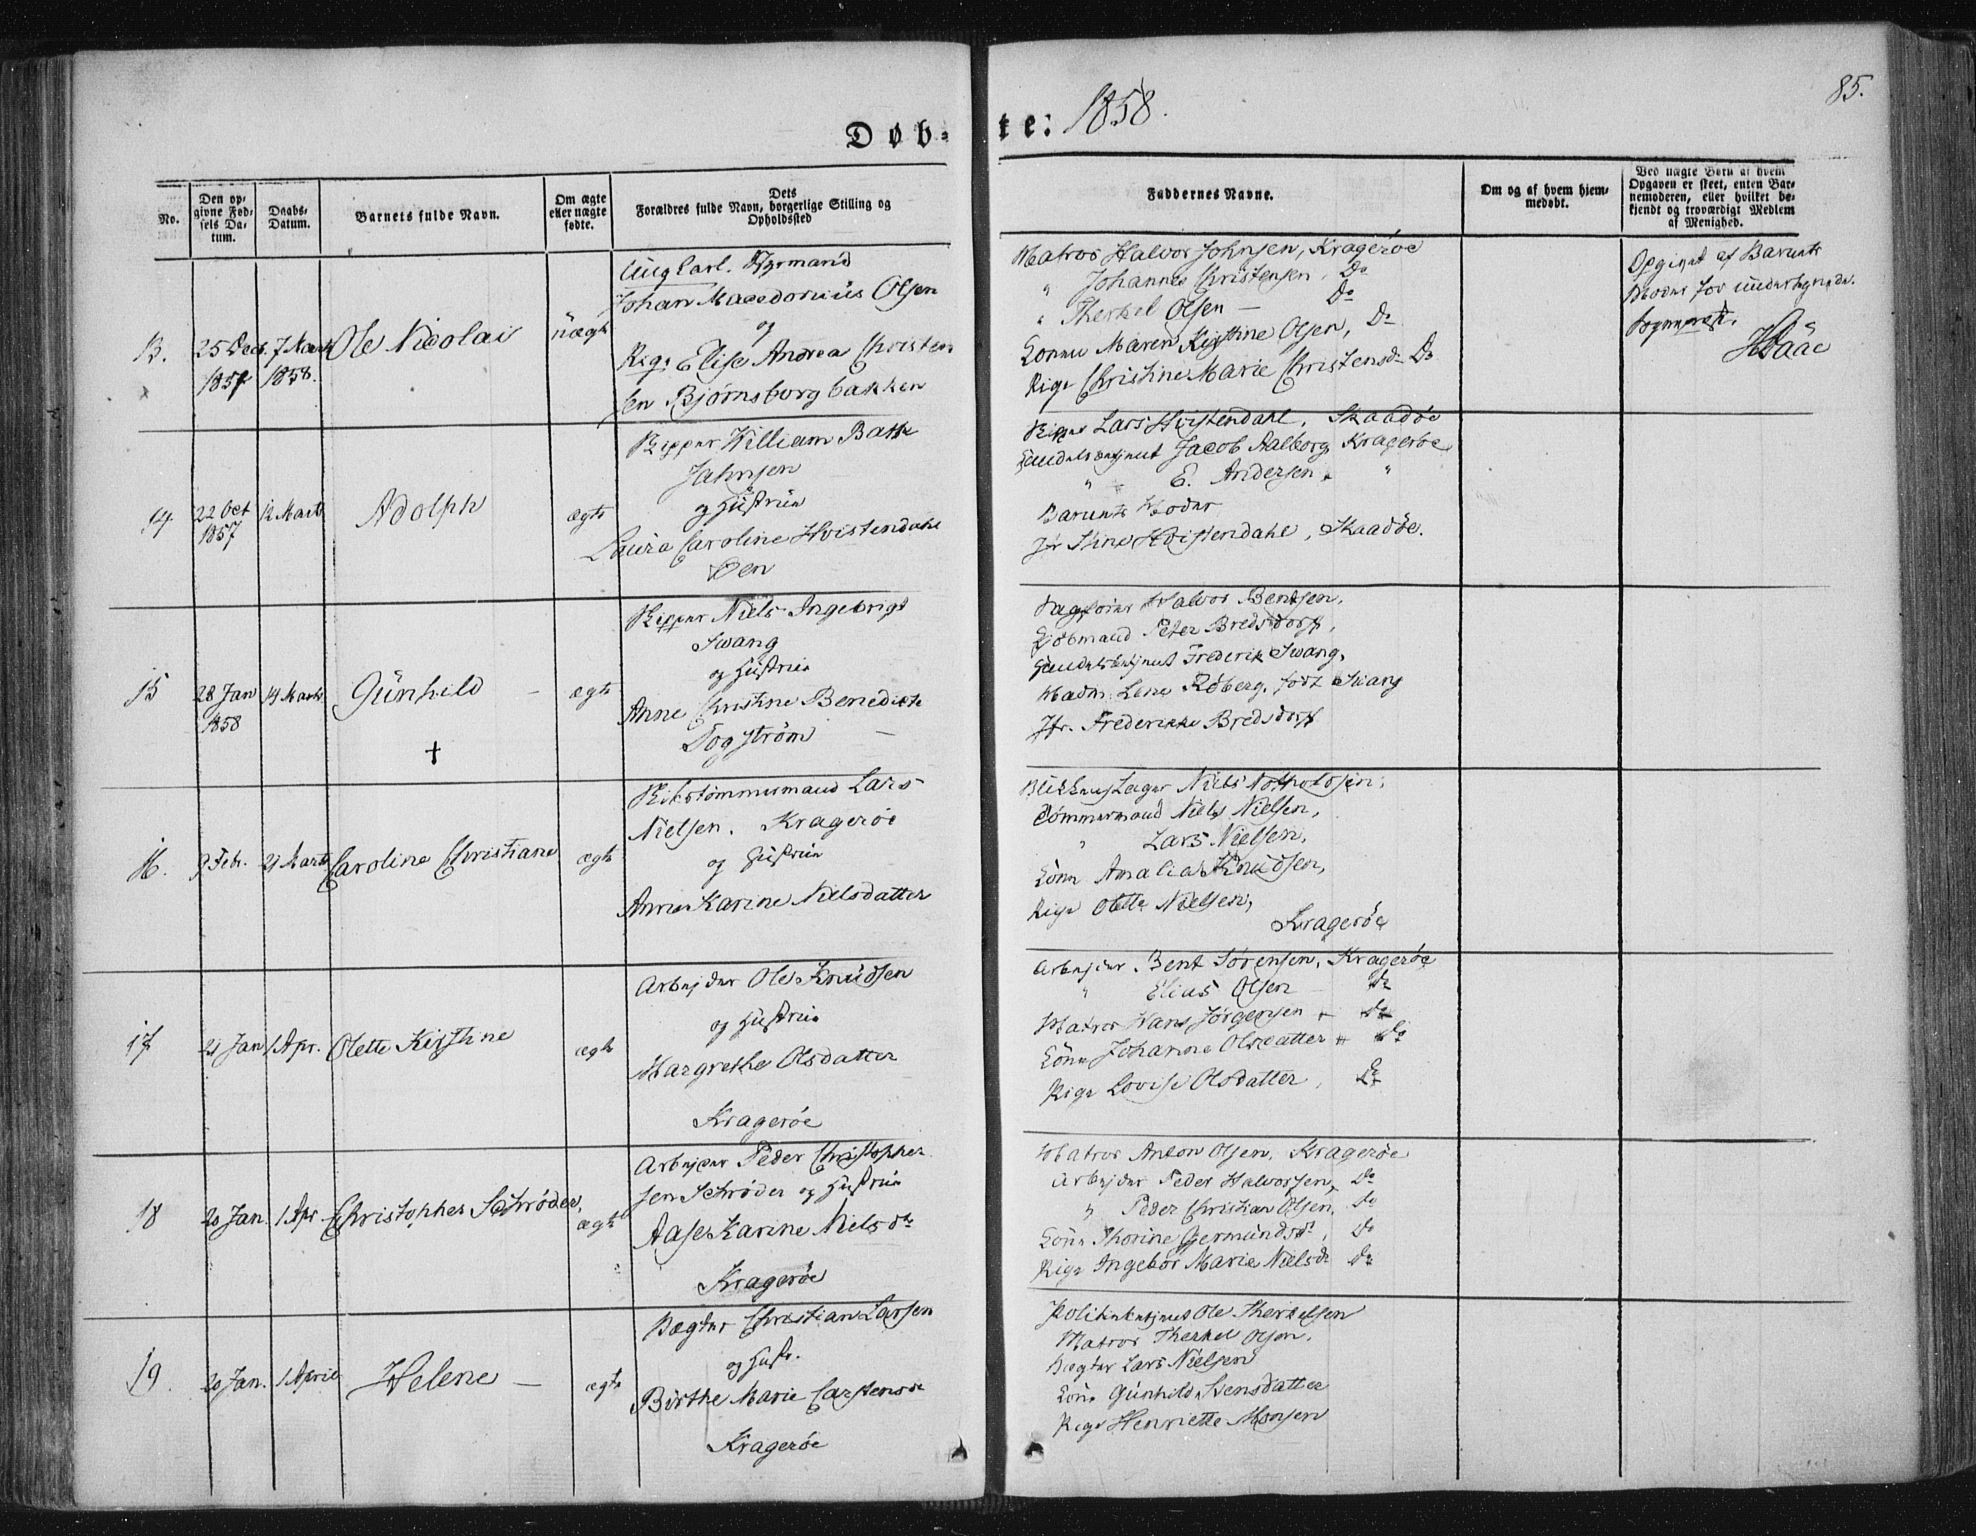 85.
Døb-te: 1858.
No.
Den op-
givne Fød-
sels Da-
tum.
Daabs-
Datum.
Barnets fulde Navn.
Om ægte
eller uægte
fødte.
Dets
Forældres fulde Navn, borgerlige Stilling og
Opholdssted
Faddernes Navne.
Om og af hvem hjem-
medøbt.
Ved uægte Børn af hvem
Opgaven er skeet, enten Bar-
nemoderen, eller hvilket be-
kjendt og troværdigt Medlem
af Menighed.
13.
25 Dec.
1857
7 Marts
1858.
Ole Nicolai
uægte
Ungkarl. Styrmand
Johan Macedonius Olsen
og
Pige Elise Andrea Christen
sen Bjørnsborgbakken
Matros Halvor Johnsen, Kragerøe
" Johannes Christensen, Do
" Therkel Olsen — Do
Konen Maren Kirstine Olsen, Do
Pige Christine Marie Christensdr Do
Opgivet af Barnets
Moder for undertegnede
Sognepræst.
14
22 Oct
1857
12 Marts
Adolph
ægte
Skipper William
Jahnsen
og Hustrue
Laura Caroline Hvistendahl
Øen
Skipper Lars Hvistendahl, Skaadøe
Handelsbetjent Jacob Aalborg, Kragerøe
" E. Andersen "
Barnets Moder
Jfr Stine Hvistendahl, Skaadøe.
15
28 Jan
1858
19 Marts
Gunhild —
†
ægte
Skipper Niels Ingebrigt
Swang
og Hustrue
Anne Christine Benedicte
Togstrøm —
Halvor Bentsen,
Kjøbmand Peter Bredsdorff,
Handelsbetjent Frederik Swang,
Madm: Lene Røberg, født Swang
Jfr. Frederikke Bredsdorff
16.
9 Feb.
21 Marts
Caroline Christiane
ægte
Skibstømmermand Lars
Nielsen. Kragerøe
og Hustrue
Anne Karine Nielsdatter
Blikkenslager Niels
Tømmermand Niels Nielsen,
" Lars Nielsen,
Kone Amalia Knudsen,
Pige Olette Nielsen,
Kragerøe
17
21 Jan
1 Apr.
Olette Kirstine
ægte
Arbejder Ole Knudsen
og Hustrue
Margrethe Olsdatter
Kragerøe
Arbejder. Bent Sørensen, Kragerøe
" Elias Olsen Do
Matros Hans Jørgensen " Do
Kone Johanne Olsdatter " Do
Pige Lovise Olsdatter, Do
18
20 Jan.
1 Apr
Christopher Schrøder,
ægte
Arbejder Peder Christopher
sen Schrøder og Hustrue
Aase Karine Nielsdr
Kragerøe
Matros Anton Olsen, Kragerøe
Arbejder Peder Halvorsen, Do
" Peder Christian Olsen, Do
Kone Thorine Germundsdr, Do
Pige Ingebor Marie Nielsdr Do
19.
20 Jan.
1 April
Helene —
ægte
Bægter Christian Larsen
og Hustr.
Birthe Marie Carstensdr
Kragerøe
Politibetjent Ole Therkelsen
Matros Therkel Olsen.
Bægter Lars Nielsen
Kone Gunhild Svensdatter
Pige Henriette Monsen